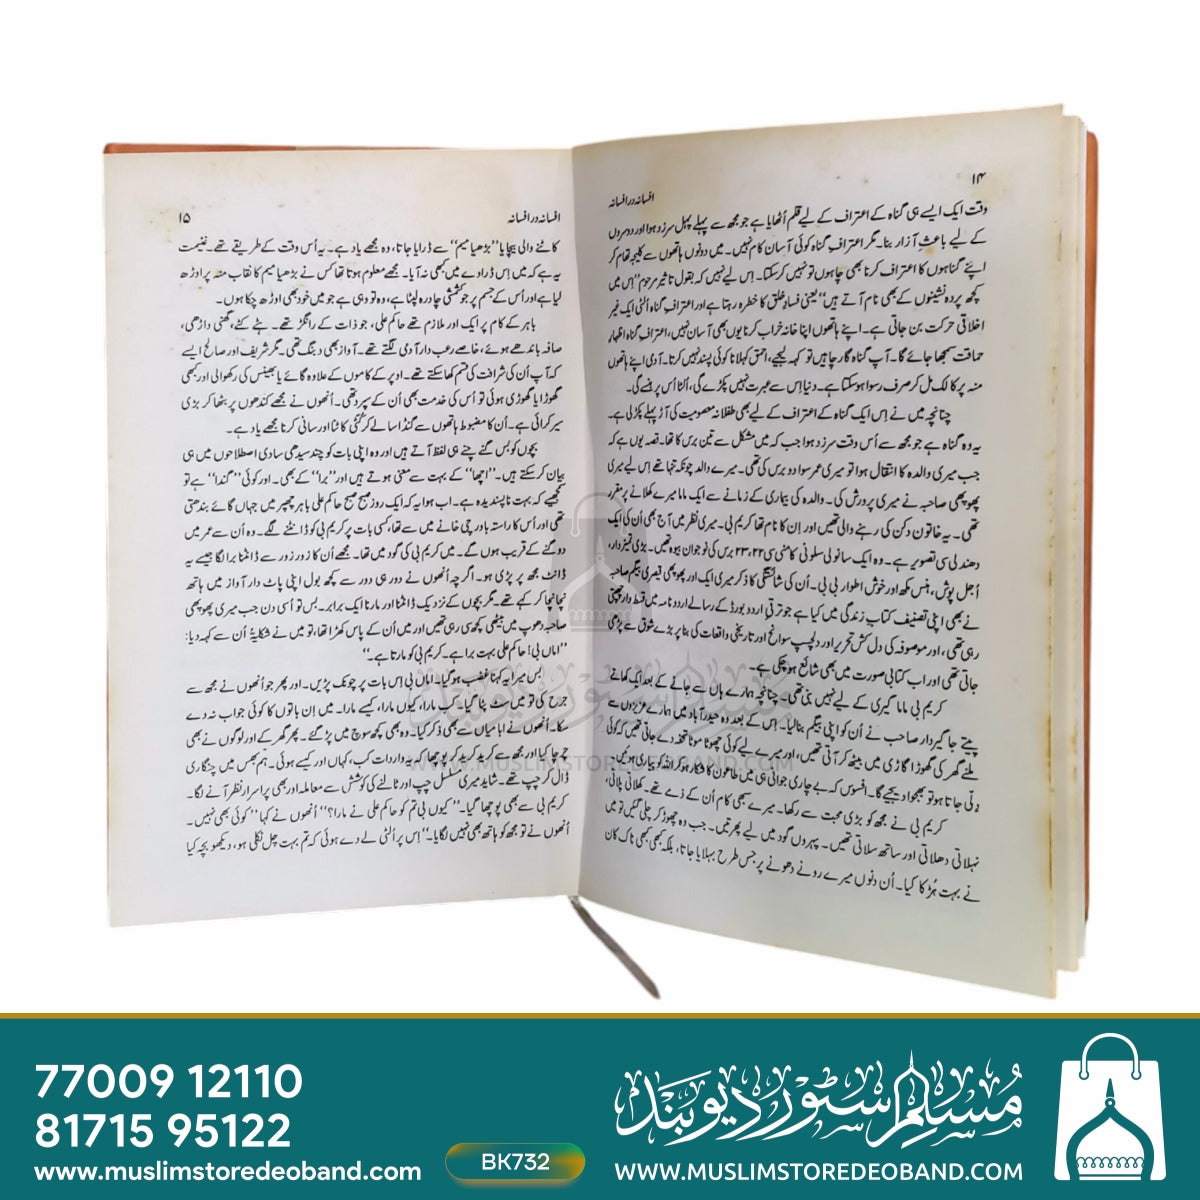 ۱۴
افسانہ در افسانہ
وقت ایک ایسے ہی گناہ کے اعتراف کے لیے قلم اُٹھایا ہے جو مجھ سے پہلے پہل سرزد ہوا اور دوسروں
کے لیے باعثِ آزار بنا۔ مگر اعترافِ گناہ کوئی آسان کام نہیں۔ میں دونوں ہاتھوں سے کلیجہ تھام کر
اپنے گناہوں کا اعتراف کرنا بھی چاہوں تو نہیں کرسکتا۔ اِس لیے نہیں کہ بقول تاثیر مرحوم ”اِس میں
کچھ پردہ نشینوں کے بھی نام آتے ہیں“ یعنی فسادِ خلق کا خطرہ رہتا ہے اور اعترافِ گناہ اُلٹی ایک غیر
اخلاقی حرکت بن جاتی ہے۔ اپنے ہاتھوں اپنا خانہ خراب کرنا یوں بھی آسان نہیں، اعترافِ گناہ اظہارِ
حماقت سمجھا جائے گا۔ آپ گناہ گار چاہیں تو کہہ لیجیے، احمق کہلانا کوئی پسند نہیں کرتا۔ آدمی اپنے ہاتھوں
منہ پر کالک مل کر صرف رسوا ہوسکتا ہے۔ دنیا اِس سے عبرت نہیں پکڑے گی، اُلٹا اُس پر ہنسے گی۔
چنانچہ میں نے اِس ایک گناہ کے اعتراف کے لیے بھی طفلانہ معصومیت کی آڑ پہلے پکڑ لی ہے۔
یہ وہ گناہ ہے جو مجھ سے اُس وقت سرزد ہوا جب کہ میں مشکل سے تین برس کا تھا۔ قصہ یوں ہے کہ
جب میری والدہ کا انتقال ہوا تو میری عمر سوا دو برس کی تھی۔ میرے والد چونکہ تنہا تھے اِس لیے میری
پھوپھی صاحبہ نے میری پرورش کی۔ والدہ کی بیماری کے زمانے سے ایک ماما میرے کھلانے پر مقرر
تھی۔ یہ خاتون دکن کی رہنے والی تھیں اور اِن کا نام تھا کریم بی۔ میری نظر میں آج بھی اُن کی ایک
دھندلی سی تصویر ہے۔ وہ ایک سانولی سلونی کامنی سی ۲۲، ۲۳ برس کی نوجوان بیوہ تھیں۔ بڑی تمیزدار،
اُجل پوش، ہنس مکھ اور خوش اطوار بی بی۔ اُن کی شائستگی کا ذکر میری ایک اور پھوپھی قیصری بیگم صاحبہ
نے بھی اپنی تصنیف کتابِ زندگی میں کیا ہے جو ترقی اردو بورڈ کے رسالے اردو نامہ میں قسط وار چھپتی
رہی تھی، اور موصوفہ کی دل کش تحریر اور دلچسپ سوانح اور تاریخی واقعات کی بنا پر بڑے شوق سے پڑھی
جاتی تھی اور اب کتابی صورت میں بھی شائع ہوچکی ہے۔
کریم بی ماما گیری کے لیے نہیں بنی تھی۔ چنانچہ ہمارے ہاں سے جانے کے بعد ایک کھاتے
پیتے جاگیردار صاحب نے اُن کو اپنی بیگم بنالیا۔ اِس کے بعد وہ حیدرآباد میں ہمارے عزیزوں سے
ملنے گھر کی گھوڑا گاڑی میں بیٹھ کر آتی تھیں، اور میرے لیے کوئی چھوٹا موٹا تحفہ دے جاتی تھیں کہ کوئی
دلّی جاتا ہو تو بھجوا دیجیے گا۔ افسوس کہ بے چاری جوانی ہی میں طاعون کا شکار ہو کر اللہ کو پیاری ہوگئیں۔
کریم بی نے مجھ کو بڑی محبت سے رکھا۔ میرے سبھی کام اُن کے ذمے تھے۔ کھلاتی پلاتی،
نہلاتی دھلاتی اور ساتھ سلاتی تھیں۔ پہروں گود میں لیے پھرتیں۔ جب وہ چھوڑ کر چلی گئیں تو میں
نے بہت ہڑکا کیا۔ اُن دنوں میرے رونے دھونے پر جس طرح بہلایا جاتا، بلکہ کبھی کبھی ناک کان
افسانہ در افسانہ
۱۵
کاٹنے والی بیچاپا ”بڑھیا میم“ سے ڈرایا جاتا، وہ مجھے یاد ہے۔ یہ اُس وقت کے طریقے تھے۔ غنیمت
یہ ہے کہ میں اِس ڈراوے میں کبھی نہ آیا۔ مجھے معلوم ہوتا تھا کس نے بڑھیا میم کا نقاب منہ پر اوڑھ
لیا ہے اور اُس کے جسم پر جو کشمشی چادرہ لپٹا ہے، وہ تو وہی ہے جو میں خود بھی اوڑھ چکا ہوں۔
باہر کے کام پر ایک اور ملازم تھے حاکم علی، جو ذات کے رانگڑ تھے۔ ہٹے کٹے، گھنی داڑھی،
صافہ باندھے ہوئے، خاصے رعب دار آدمی لگتے تھے۔ آواز بھی دبنگ تھی۔ مگر شریف اور صالح ایسے
کہ آپ اُن کی شرافت کی قسم کھا سکتے تھے۔ اوپر کے کاموں کے علاوہ گائے یا بھینس کی رکھوالی اور کبھی
گھوڑا یا گھوڑی ہوئی تو اُس کی خدمت بھی اُن کے سپرد تھی۔ اُنھوں نے مجھے کندھوں پر بٹھا کر بڑی
سیر کرائی ہے۔ اُن کا مضبوط ہاتھوں سے گنڈاسا لے کر کُٹی کاٹنا اور سانی کرنا مجھے یاد ہے۔
بچوں کو بس گنے چنے ہی لفظ آتے ہیں اور وہ اپنی بات کو چند سیدھی سادی اصطلاحوں میں ہی
بیان کرسکتے ہیں۔ ”اچھا“ کے بہت سے معنی ہوتے ہیں اور ”برا“ کے بھی۔ اور کوئی ”گندا“ ہے تو
سمجھیے کہ بہت ناپسندیدہ ہے۔ اب ہوا یہ کہ ایک روز صبح صبح حاکم علی باہر چھپر میں جہاں گائے بندھتی
تھی اور اُس کا راستہ باورچی خانے میں سے تھا، کسی بات پر کریم بی کو ڈانٹنے لگے۔ وہ اُن سے عمر میں
دوگنے کے قریب ہوں گے۔ میں کریم بی کی گود میں تھا۔ مجھے اُن کا زور زور سے ڈانٹنا برا لگا جیسے یہ
ڈانٹ مجھ پر پڑی ہو۔ اگرچہ اُنھوں نے دور ہی دور سے کچھ بول اپنی پاٹ دار آواز میں ہاتھ
نچا نچا کر کہے تھے۔ مگر بچوں کے نزدیک ڈانٹنا اور مارنا ایک برابر۔ بس تو اُسی دن جب میری پھوپھی
صاحبہ دھوپ میں بیٹھی کچھ سی رہی تھیں اور میں اُن کے پاس کھڑا تھا، تو میں نے شکایتاً اُن سے کہہ دیا:
”اماں بی! حاکم علی بہت برا ہے۔ کریم بی کو مارتا ہے۔“
بس میرا یہ کہنا غضب ہوگیا۔ اماں بی اِس بات پر چونک پڑیں۔ اور پھر جو اُنھوں نے مجھ سے
جرح کی تو میں سٹ پٹا گیا۔ کب مارا، کیوں مارا، کیسے مارا۔ میں اِن باتوں کا کوئی جواب نہ دے
سکا۔ اُنھوں نے ابا میاں سے بھی ذکر کیا۔ وہ بھی کچھ سوچ میں پڑ گئے۔ پھر گھر کے اور لوگوں نے بھی
چرچا کیا اور مجھ سے کرید کرید کر پوچھا کہ یہ واردات کب، کہاں اور کیسے ہوئی۔ ہم بھس میں چنگاری
ڈال کر چپ تھے۔ شاید میری مسلسل چپ اور ٹالنے کی کوشش سے معاملہ اور بھی پراسرار نظر آنے لگا۔
کریم بی سے بھی پوچھا گیا۔ ”کیوں بی تم کو حاکم علی نے مارا؟“ اُنھوں نے کہا ”کوئی بھی نہیں۔
اُنھوں نے تو مجھ کو ہاتھ بھی نہیں لگایا۔“ اِس پر اُلٹی لے دے ہوئی کہ تم بہت چل نکلی ہو، دیکھو بچہ کیا
مسلم سٹور دیوبند
WWW.MUSLIMSTOREDEOBAND.COM
77009 12110
81715 95122
www.muslimstoredeoband.com
BK732
مسلم سٹور دیوبند
WWW.MUSLIMSTOREDEOBAND.COM